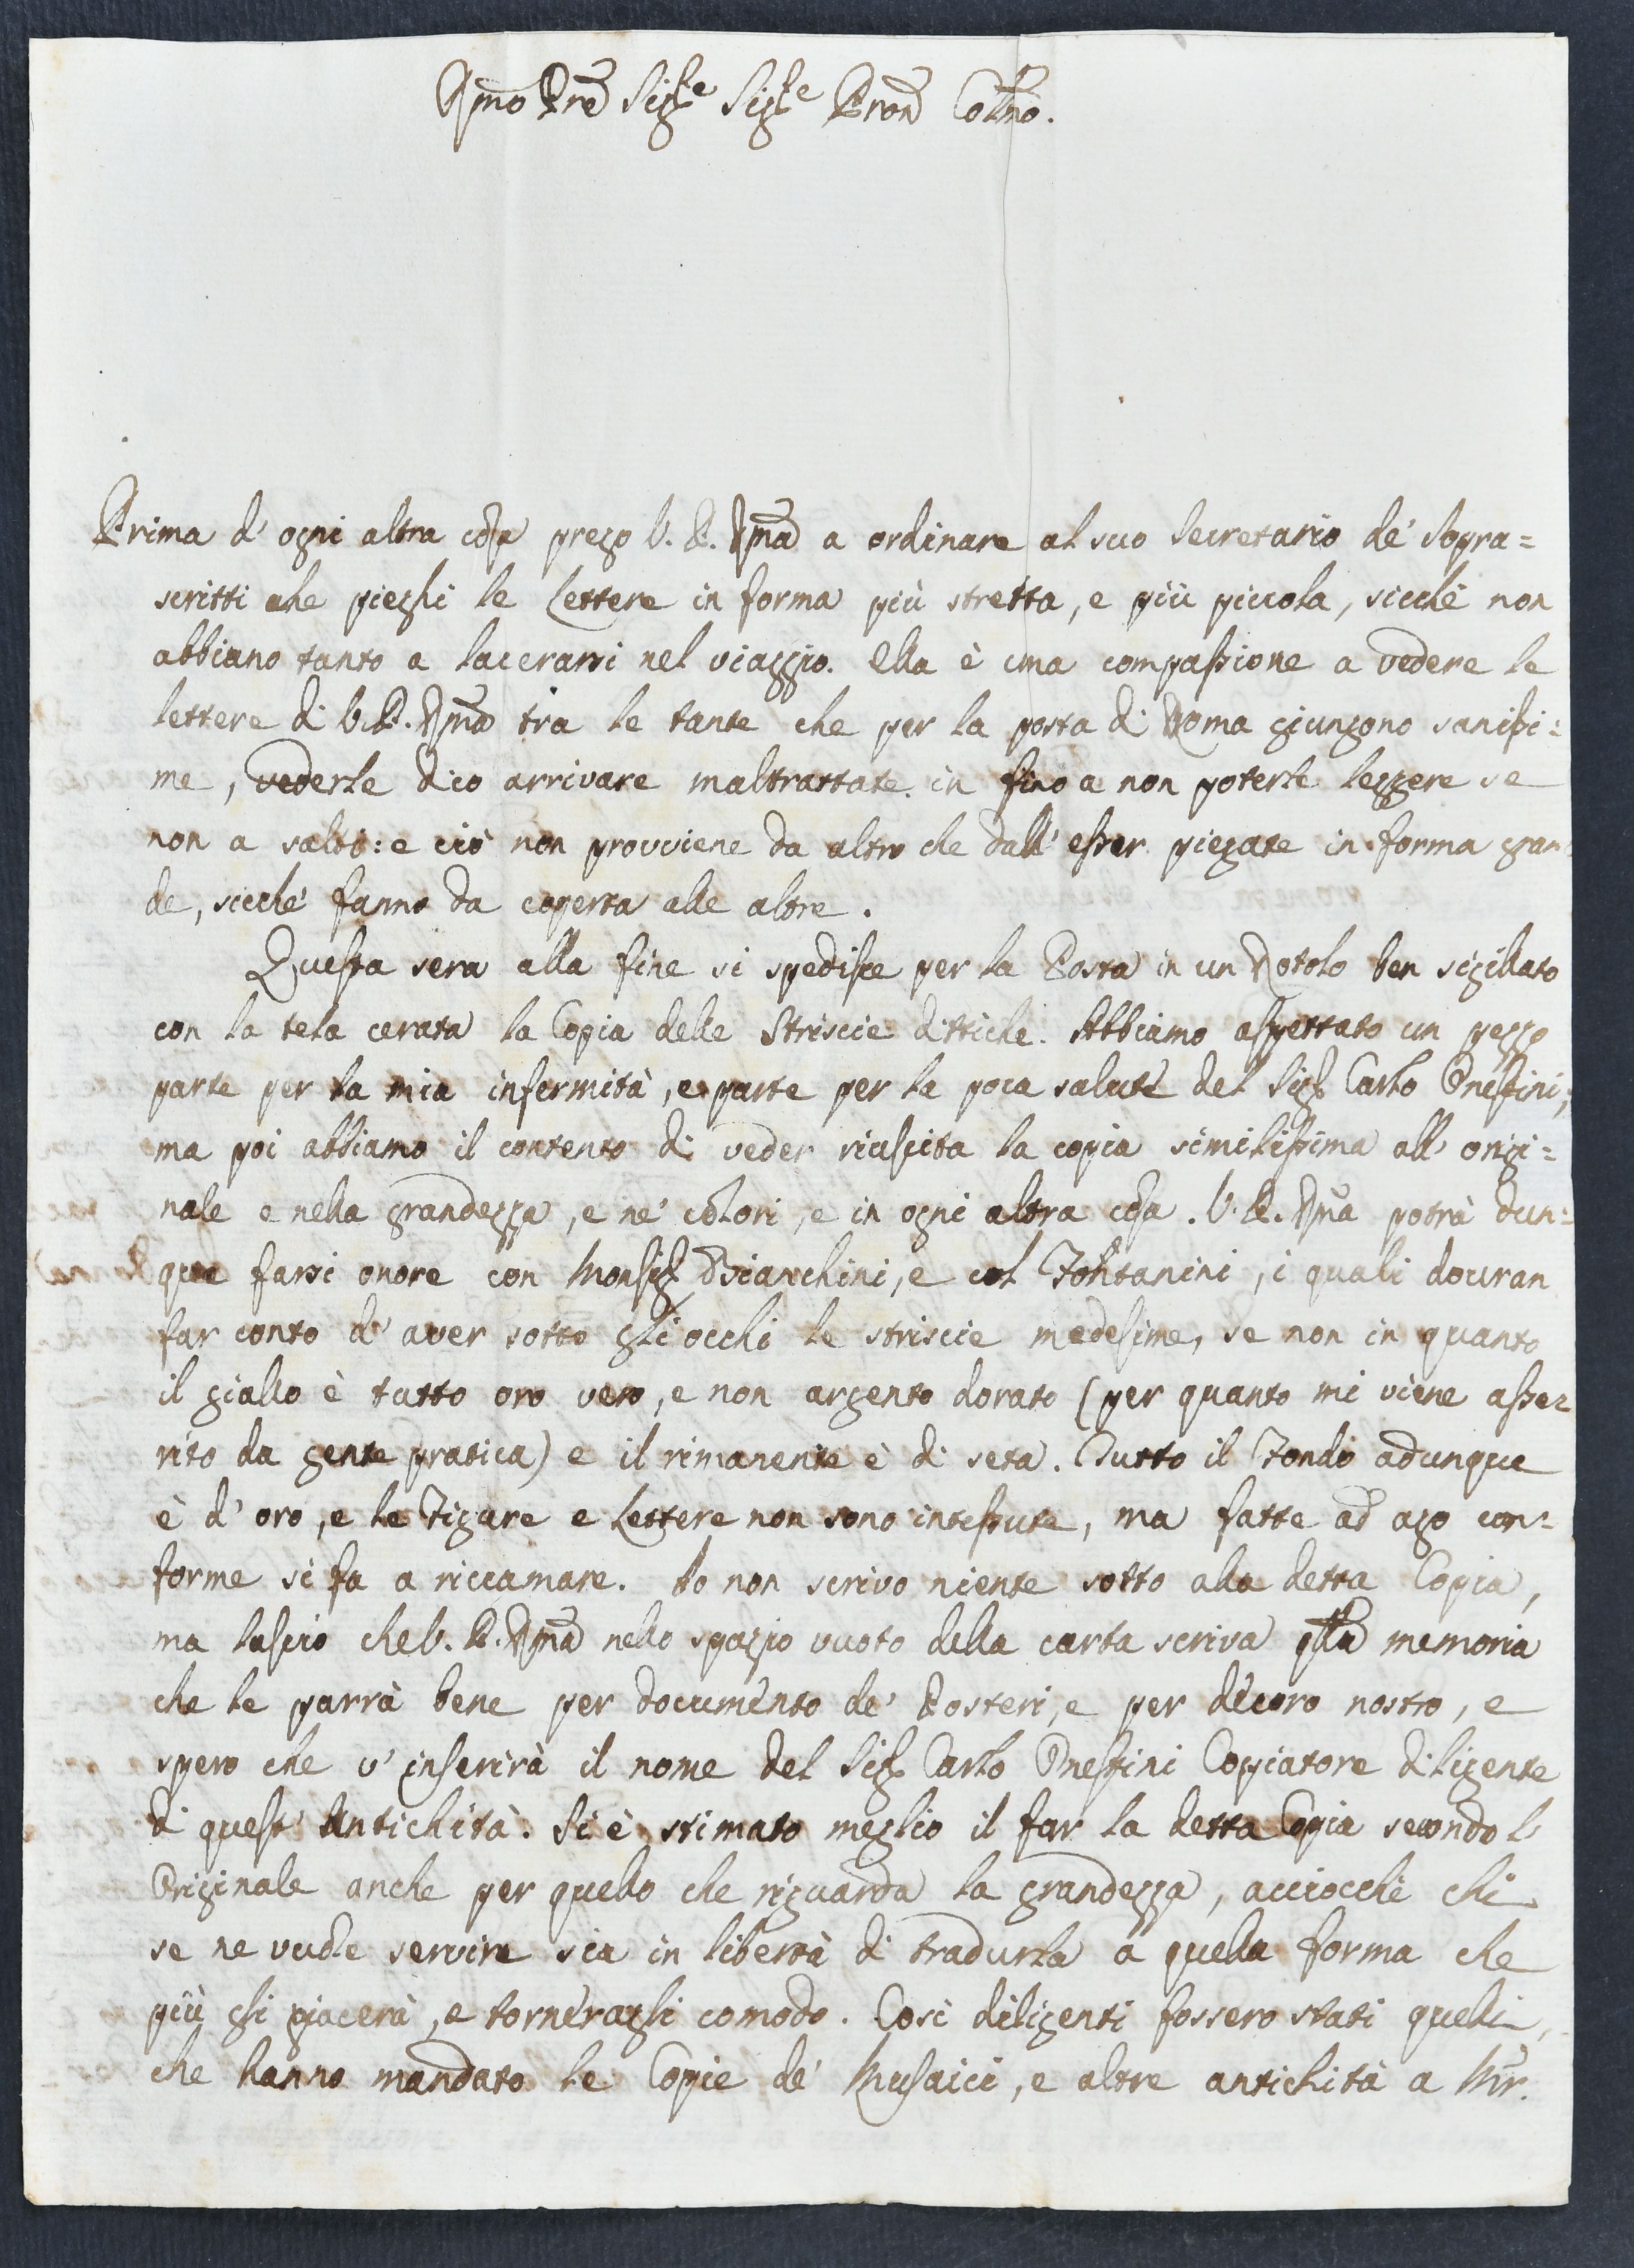 Rmo Pre Sigr̃e Sigr̃e Pron Colmo.
Prima d' ogni altra cosa prego V. P. Rma a ordinare al suo Secretario de' Sopra=
scritti che pieghi le Lettere in forma più stretta, e più piccola, sicchè non
abbiano tanto a lacerarsi nel viaggio. Ella è una compassione a vedere le
lettere di V. P. Rma tra le tante che per la posta di Roma giungono sanissi=
me, vederle dico arrivare maltrattate in fino a non poterle leggere se
non a salti: e ciò non provviene da altro che dall' esser piegate in forma gran
de, sicche' fanno da coperta alle altre.
Questa sera alla fine si spedisce per la Posta in un Rotolo ben sigillato
con la tela cerata la Copia delle Striscie dittiche. Abbiamo aspettato un pezzo
parte per la mia infermità, e parte per la poca salute del Sigr Carlo Onestini;
ma poi abbiamo il contento di veder riuscita la copia similissima all' origi=
nale e nella grandezza, e ne' colori, e in ogni altra cosa. V. P. Rma potrà dun=
que farsi onore con Monsigr Bianchini, e col Fontanini, i quali dovran
far conto d' aver sotto gli occhi le striscie medesime, se non in quanto
il giallo è tutto oro vero, e non argento dorato (per quanto mi viene asse=
rito da gente pratica) e il rimanente è di seta. Tutto il Fondo adunque
è d' oro, e le Figure e Lettere non sono intessute, ma fatte ad ago con=
forme si fa a riccamare. Io non scrivo niente sotto alla detta Copia,
ma lascio che V. P. Rma nello spazio vuoto della carta scriva qlla memoria
che le parrà bene per documento de' Posteri, e per decoro nostro, e
spero che v' inserirà il nome del Sigr Carlo Onestini Coppiatore diligente
di quest' Antichità. Si è stimato meglio il far la detta Copia secondo l'
Originale anche per quello che riguarda la grandezza, acciocchè chi
se ne vuole servire sia in libertà di tradurla a quella forma che
più gli piacerà, e torneragli comodo. Così diligenti fossero stati quelli,
che hanno mandato le Copie de' Musaici, e altre antichità a Mr.